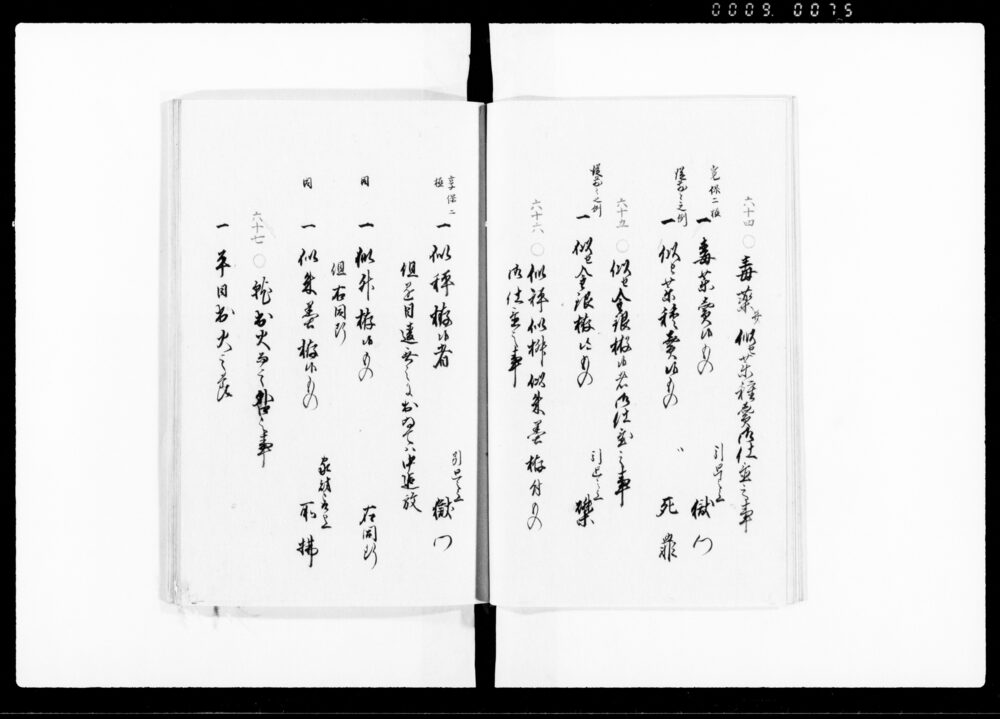 0009 0075
六十四 ○ 毒薬并似セ薬種売御仕置之事
寛保二極
一 毒薬売候もの
引廻之上 獄門
従前々之例
一 似セ薬種売候もの
死罪
六十五 ○ 似セ金銀拵候者御仕置之事
従前々之例
一 似セ金銀拵候もの
引廻之上 磔
六十六 ○ 似秤似桝似朱墨拵候もの
御仕置之事
享保二
極
一 似秤拵候者
引廻之上 獄門
但遣目違無之におゐてハ中追放
同
一 似舛拵候もの
右同断
但右同断
同
一 似朱墨拵候もの
家財取上
所払
六十七 ○ 出火
一 平日出火之節